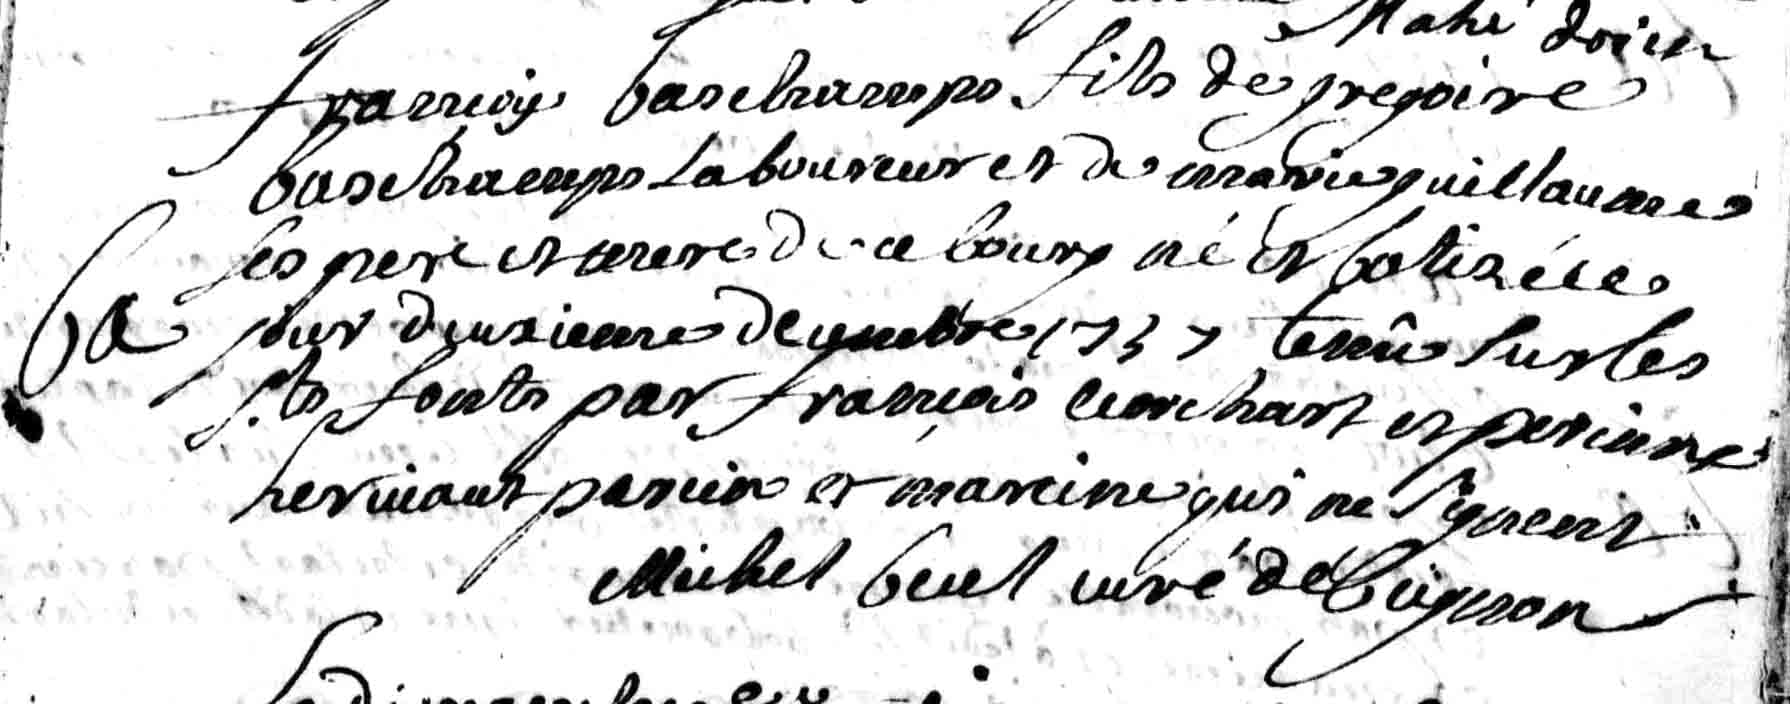 Mahé doien
françois baschamps fils de gregoire
baschamps Laboureur et de marie guillaume
ses pere et mere de ce bourg né et batisé ce
Ba jour deuxieme decembre 1757 tenû sur les
s.ts fonts par françois et perinne
paricin et mareine qui ne signent
Michel beul curé de Cugnon